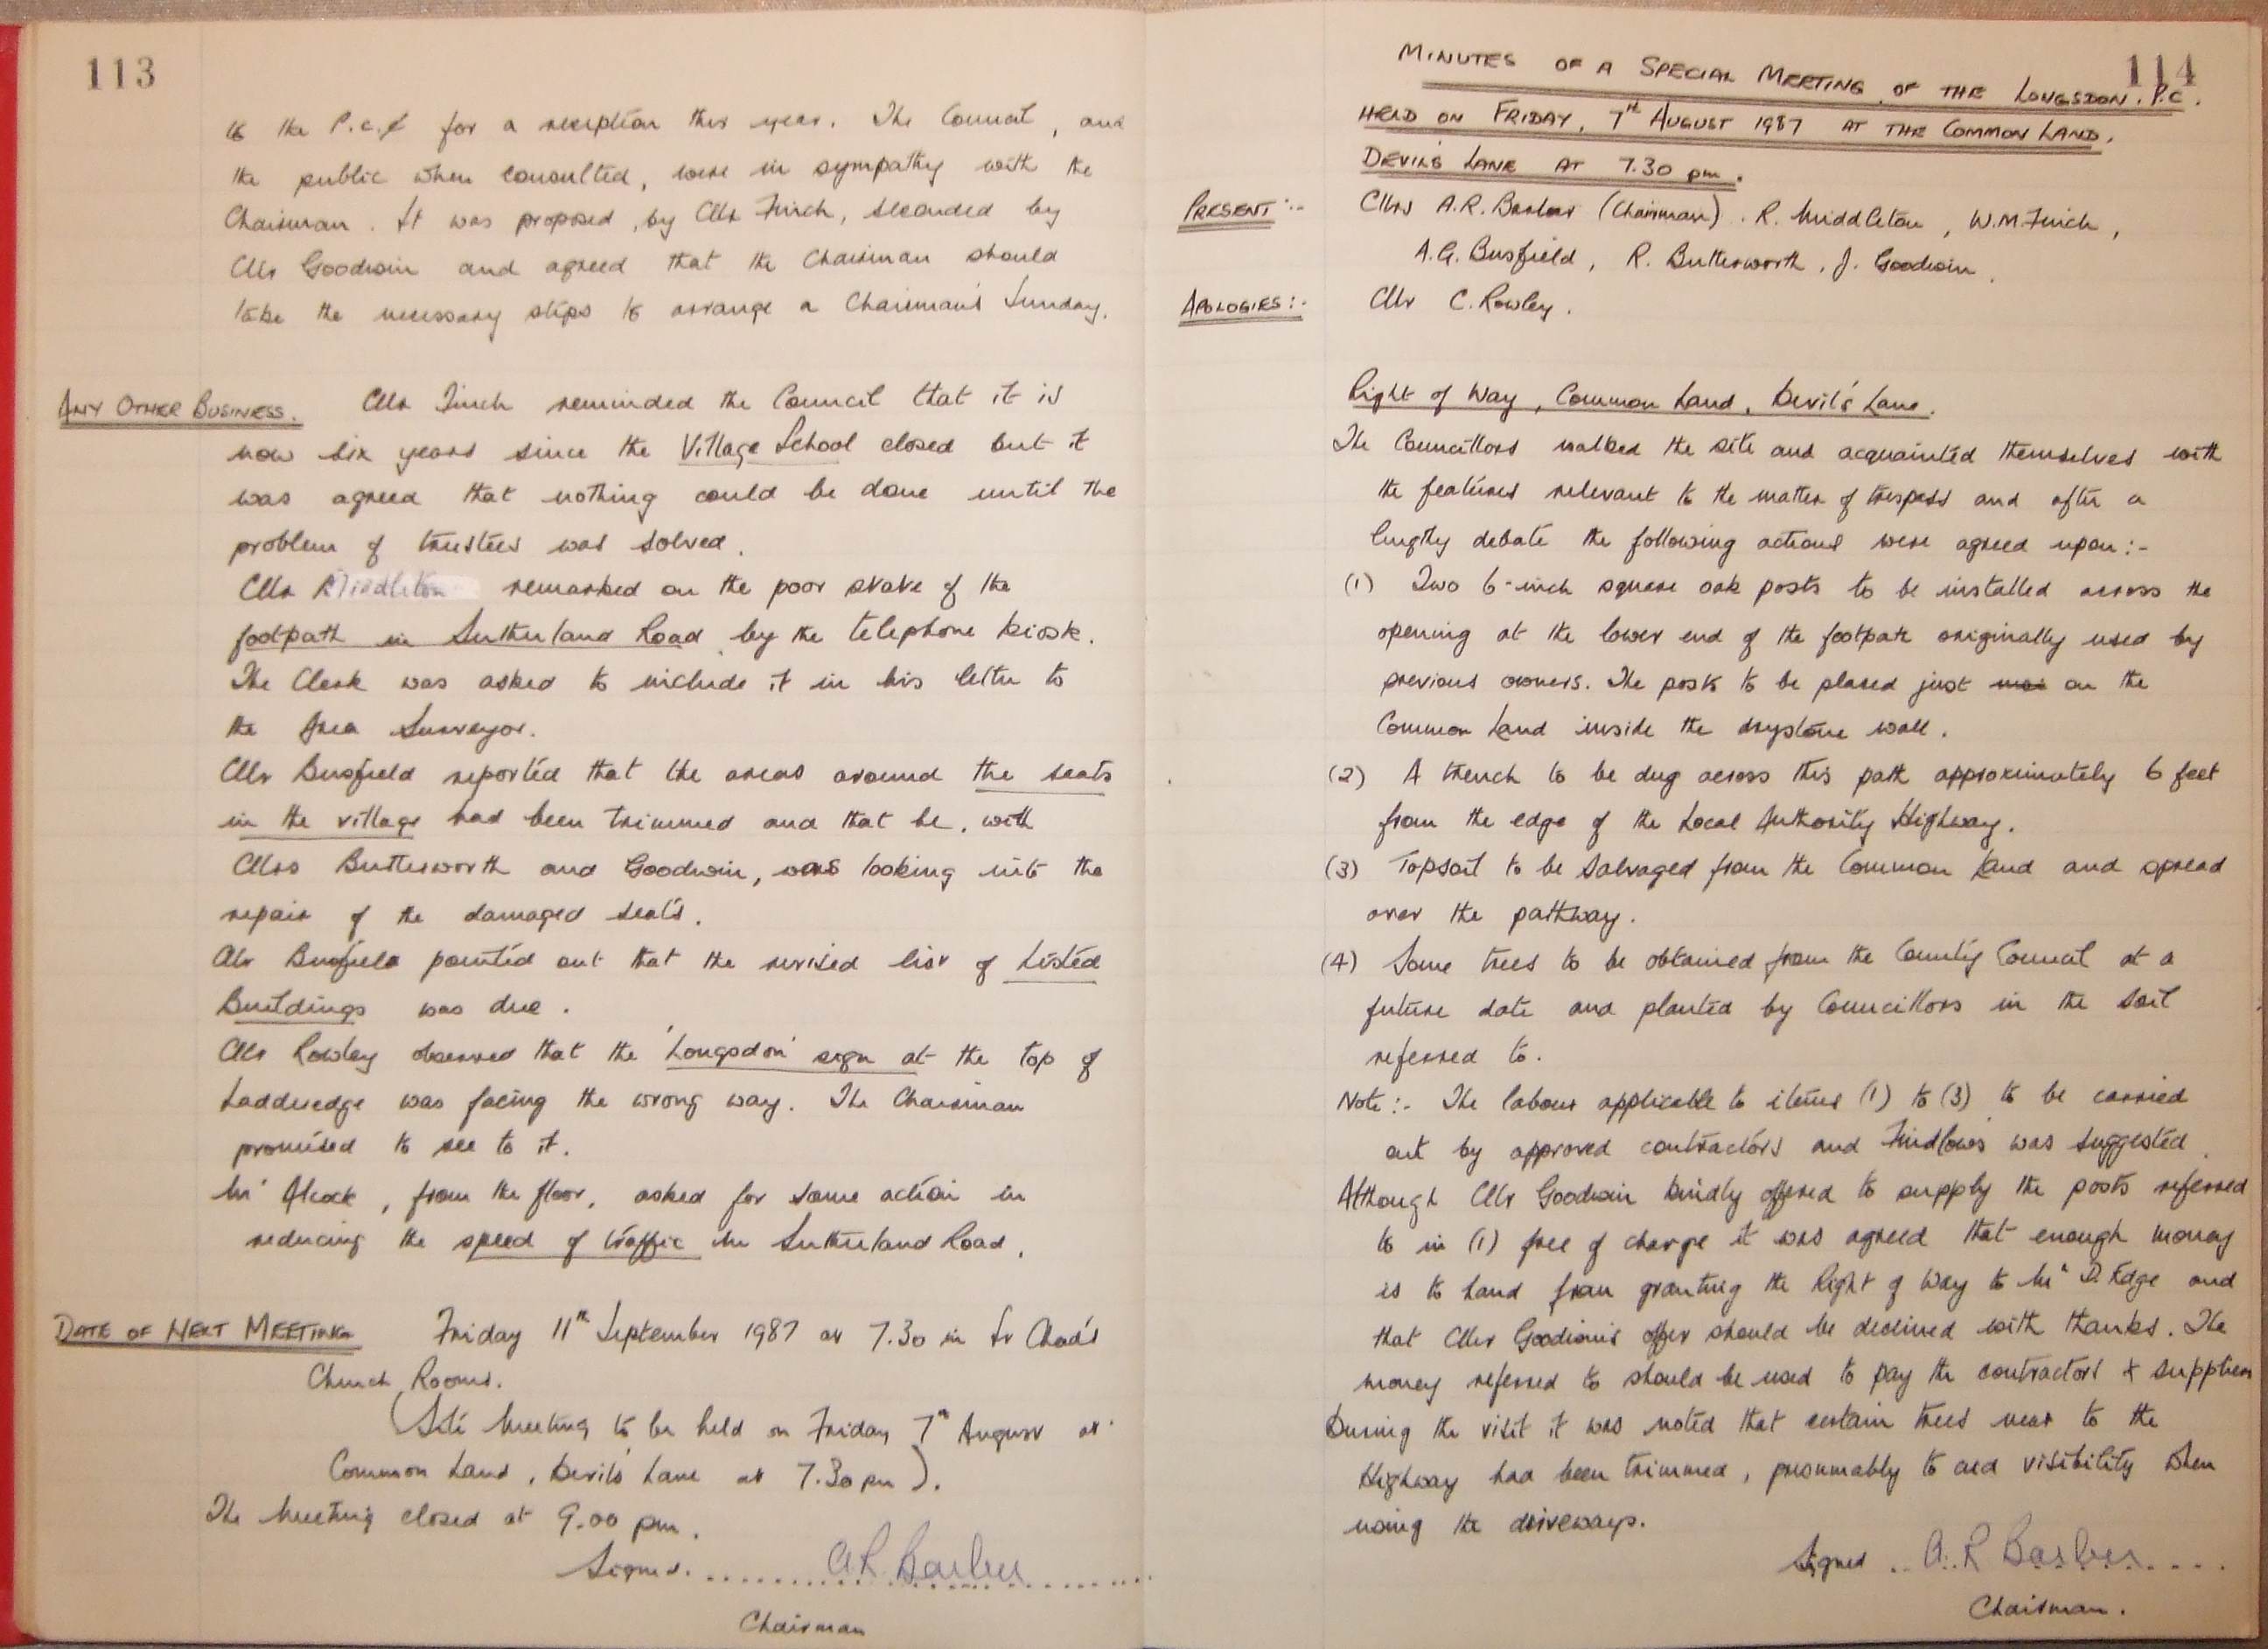 113
to the P.C.C for a reception this year. The Council, and
the public when consulted, were in sympathy with the
Chairman. It was proposed, by Cllr Finch, seconded by
Cllr Goodwin and agreed that the Chairman should
take the necessary steps to arrange a Chairman's Sunday.
ANY OTHER BUSINESS. Cllr Finch reminded the Council that it is
now six years since the Village School closed but it
was agreed that nothing could be done until the
problem of trustees was solved.
Cllr Middleton remarked on the poor state of the
footpath in Sutherland Road by the telephone kiosk.
The Clerk was asked to include it in his letter to
the Area Surveyor.
Cllr Busfield reported that the areas around the seats
in the village had been trimmed and that he, with
Cllrs Butterworth and Goodwin, was looking into the
repair of the damaged seats.
Cllr Busfield pointed out that the revised list of Listed
Buildings was due.
Cllr Rowley observed that the 'Longsdon' sign at the top of
Ladderedge was facing the wrong way. The Chairman
promised to see to it.
Mr Alcock, from the floor, asked for some action in
reducing the speed of traffic in Sutherland Road.
DATE OF NEXT MEETING Friday 11th September 1987 at 7.30 in St Chad's
Church Rooms.
(Site Meeting to be held on Friday 7th August at
Common Land, Devil's Lane at 7.30 pm).
The Meeting closed at 9.00 pm.
Signed. ........ A R Barber ........
Chairman
114
MINUTES OF A SPECIAL MEETING OF THE LONGSDON. P.C.
HELD ON FRIDAY, 7th AUGUST 1987 AT THE COMMON LAND,
DEVIL'S LANE AT 7.30 pm.
PRESENT:- Cllrs A.R. Barber (Chairman). R. Middleton, W.M. Finch,
A.G. Busfield, R. Butterworth, J. Goodwin.
APOLOGIES:- Cllr C. Rowley.
Right of Way, Common Land, Devil's Lane.
The Councillors walked the site and acquainted themselves with
the features relevant to the matter of trespass and after a
lengthy debate the following actions were agreed upon:-
(1) Two 6-inch square oak posts to be installed across the
opening at the lower end of the footpath originally used by
previous owners. The posts to be placed just on the
Common Land inside the drystone wall.
(2) A trench to be dug across this path approximately 6 feet
from the edge of the Local Authority Highway.
(3) Topsoil to be salvaged from the Common Land and spread
over the pathway.
(4) Some trees to be obtained from the County Council at a
future date and planted by Councillors in the soil
referred to.
Note:- The labour applicable to items (1) to (3) to be carried
out by approved contractors and Findlows was suggested.
Although Cllr Goodwin kindly offered to supply the posts referred
to in (1) free of charge it was agreed that enough money
is to hand from granting the Right of Way to Mr D. Edge and
that Cllr Goodwin's offer should be declined with thanks. The
money referred to should be used to pay the contractors & suppliers
During the visit it was noted that certain trees near to the
Highway had been trimmed, presumably to aid visibility when
using the driveways.
Signed .. A. R Barber ....
Chairman.